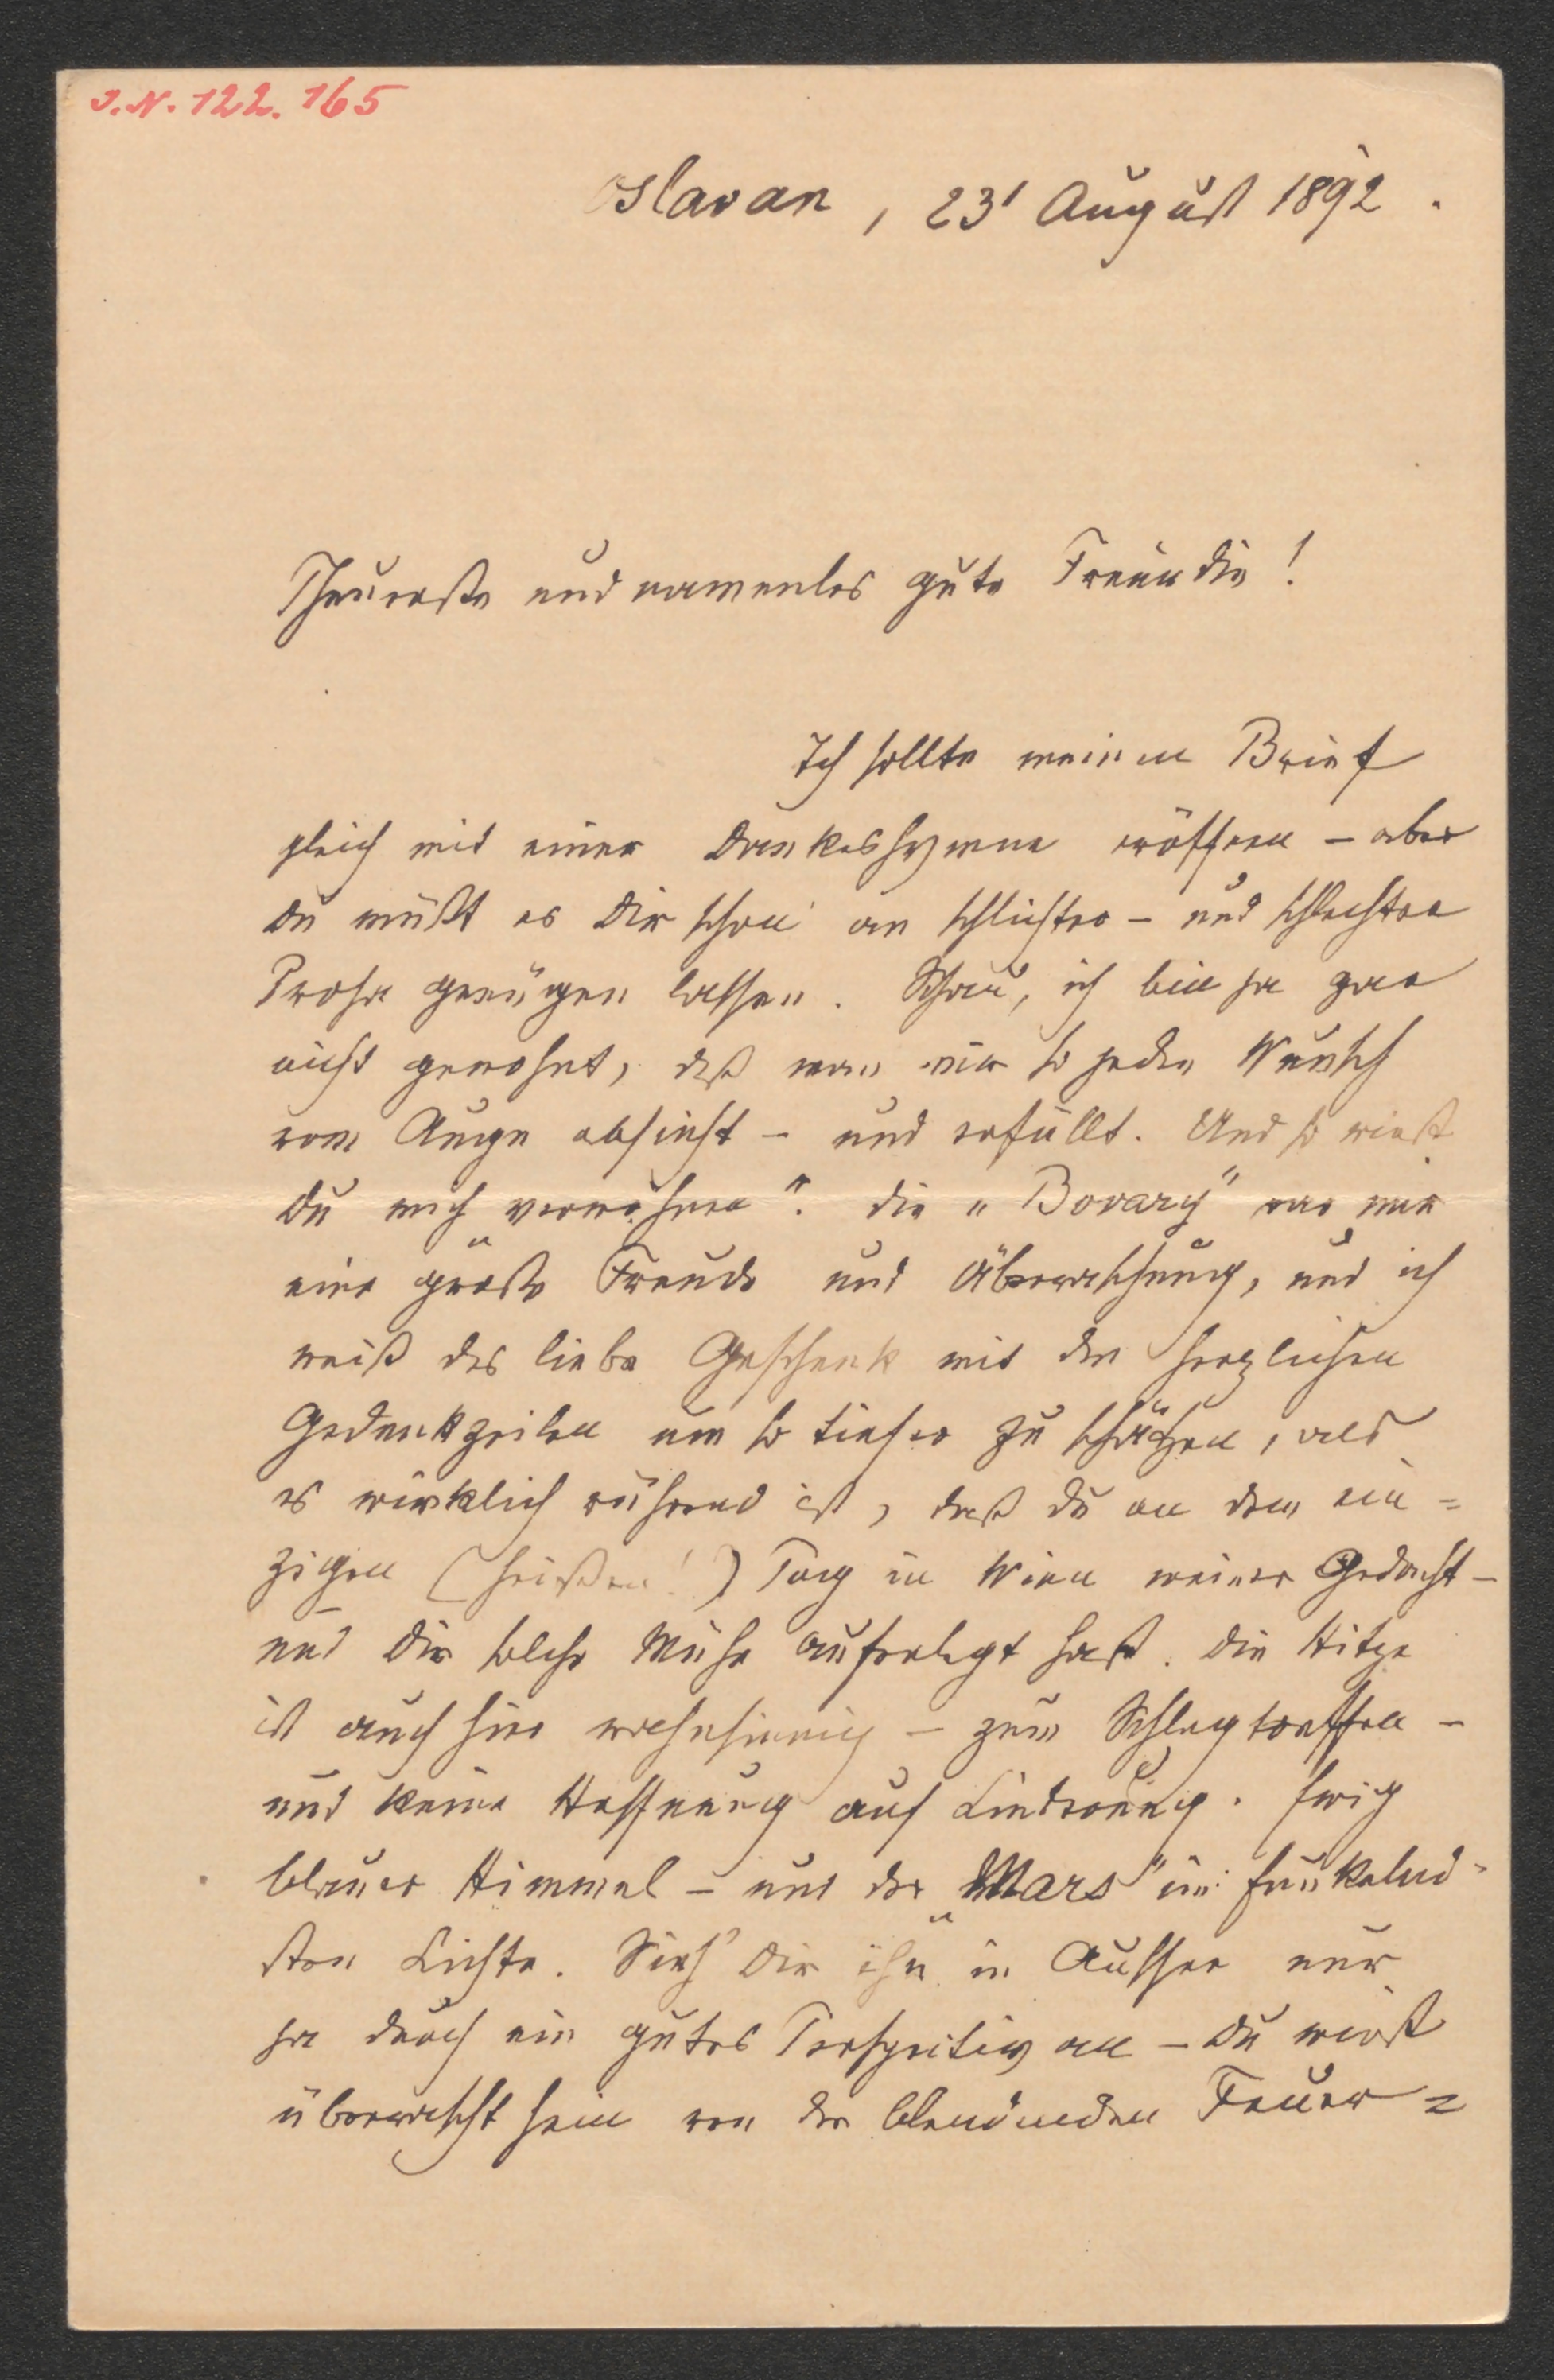 J.N. 122.165
Oslavan, 23' August 1892.
Theuerste und namenlos gute Freundin!
Ich sollte meinen Brief
gleich mit einer Dankeshymne eröffnen – aber
Du mußt es Dir schon an schlichter – und schlechter
Prosa genügen lassen. Schau, ich bin ja gar
nicht gewohnt, daß man mir so jeden Wunsch
vom Auge absieht – und erfüllt. Und so wirst
Du mich verwöhnen". Die „Bovary" war mir
eine große Freude und Überraschung, und ich
weiß das liebe Geschenk mit den herzlichen
Gedenkzeilen um so tiefer zu schätzen, als
es wirklich rührend ist, daß Du an dem ein=
zigen (heißen!) Tag in Wien meiner gedacht –
und Dir solche Mühe auferlegt hast. Die Hitze
ist auch hier wahnsinnig – zum Schlagtreffen –
und keine Hoffnung auf Linderung. Ewig
blauer Himmel – und der „Mars" im funkelnd-
sten Lichte. Sieh' Dir ihn in Aussee nur
ja durch ein gutes Perspectiv an – Du wirst
überrascht sein von der blendenden Feuer=